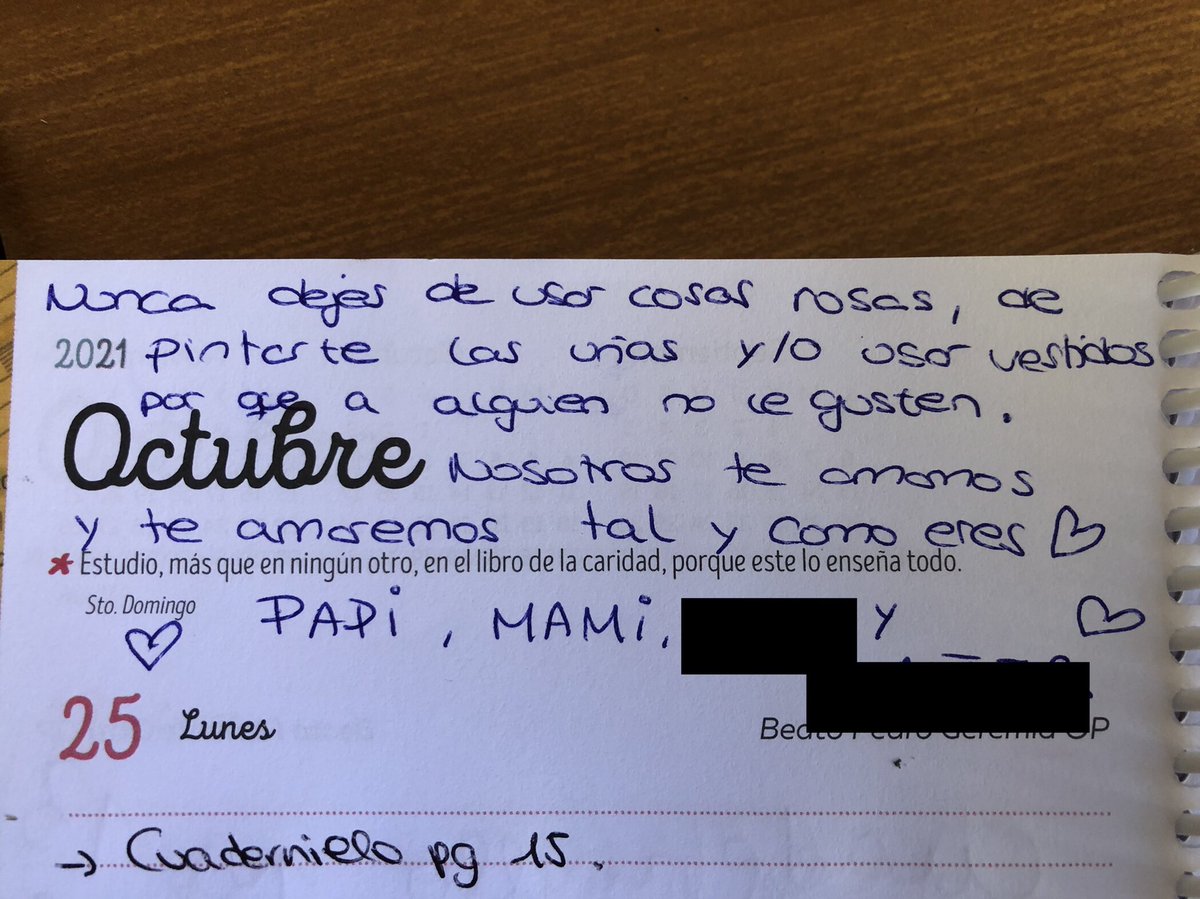 Nunca dejes de usar cosas rosas, de
2021 pintarte las uñas y/o usar vestidos
por que a alguien no le gusten.
Octubre Nosotros te amamos
y te amaremos tal y como eres
* Estudio, más que en ningún otro, en el libro de la caridad, porque este lo enseña todo.
Sto. Domingo
PAPi, MAMi, y
25 Lunes Beato Pedro Geremia OP
→ Cuadernielo pg 15.